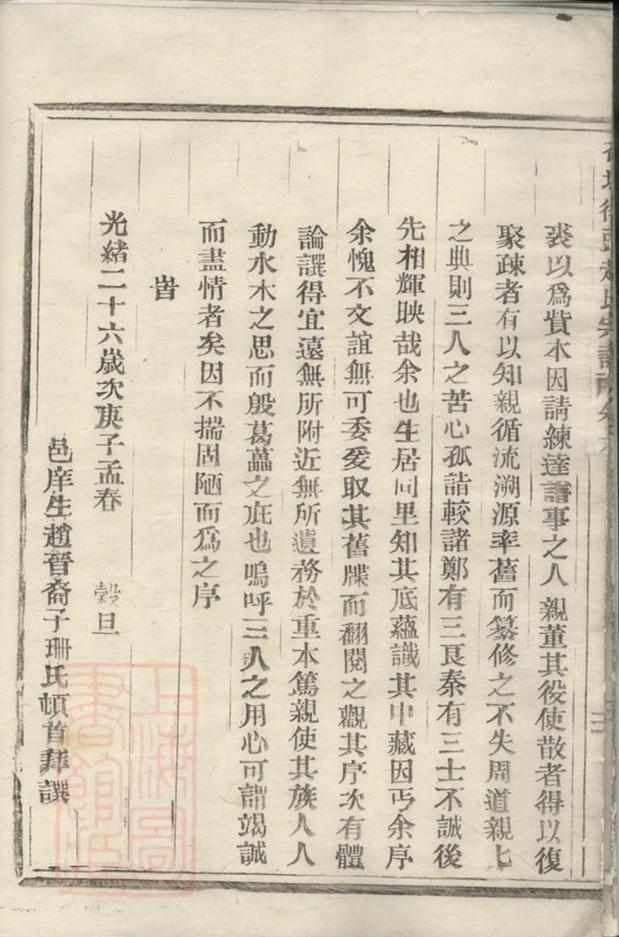 裘以爲貲本因請練達譜事之人親董其役使散者得以復
聚疎者有以知親循流溯源率舊而纂修之不失周道親七
之典則三人之苦心孤詣較諸鄭有三良秦有三士不誠後
先相輝映哉余也生居同里知其底蘊識其中藏因丐余序
余愧不文誼無可委爰取其舊牒而翻閱之觀其序次有體
論譔得宜遠無所附近無所遺務於重本篤親使其族人人
動水木之思而殷葛藟之庇也嗚呼三人之用心可謂竭誠
而盡情者矣因不揣固陋而爲之序
旹
光緒二十六歲次庚子孟春 穀旦
邑庠生趙晉裔子珊氏頓首拜譔
上海圖書館藏